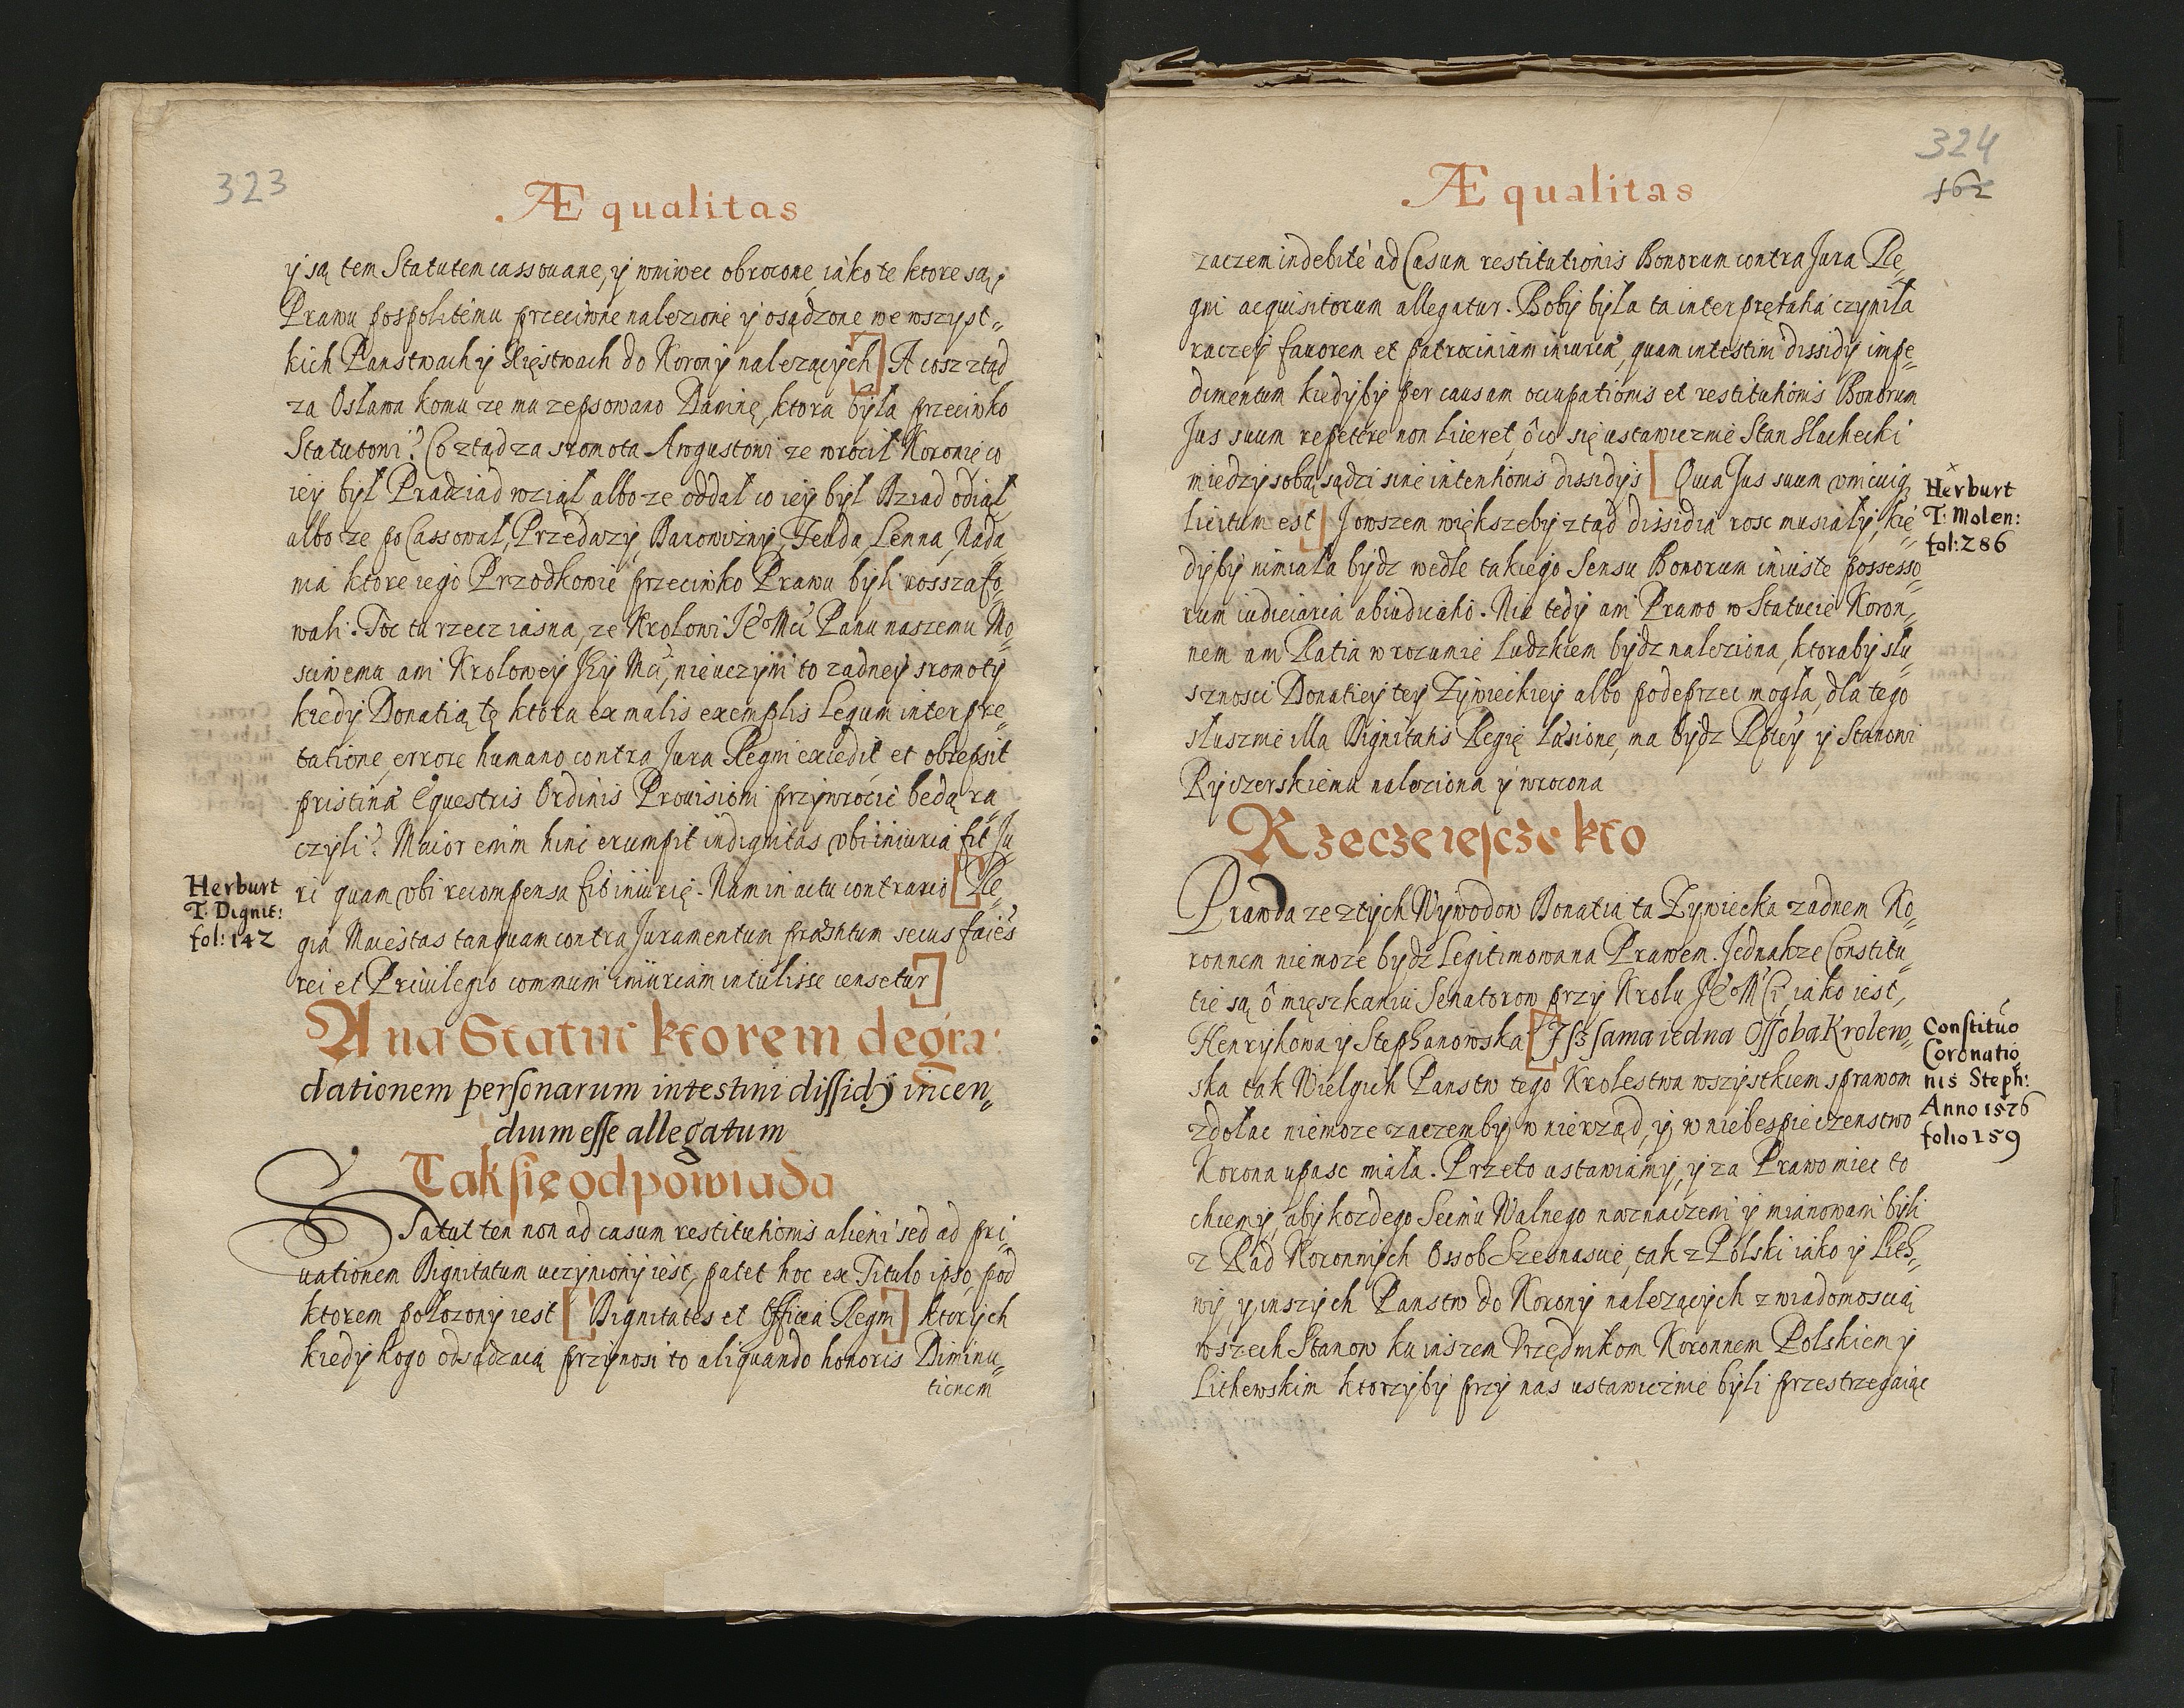 323
Æqualitas
ÿ są tem Statutem cassouane, ÿ wniwec obrocone iako te ktore są
Prawu pospolitemu przeciwne nalezione ÿ osądzone we wszyst„
kich Panstwach ÿ Xięstwach do Koronÿ nalezącÿch] A cosz ztąd
za Osława komu ze mu zepsowano Daninę, ktora bÿla przeciwko
Statutowi? Co ztąd za sromota Augustowi ze wrocił Koronie co
ieÿ bÿł Pradziad wziął albo ze oddał co ieÿ bÿł Dziad odiął
albo ze poCassował, Przedazÿ, Darowiznÿ, Feuda, Lenna, Nada„
nia ktore iego Przodkowie przeciwko Prawu bÿli rosszafo„
wali. Toć tu rzecz iasna, ze Krolowi Je° Mći Panu naszemu Mo„
sciwemu ani Kroloweÿ Jeÿ Mći, nieuczÿni to zadneÿ sromotÿ
kiedÿ Donatią tę ktora ex malis exemplis Legum interpre„
tatione, errore humano contra Jura Regni excedit et obrepsit
pristinæ Equestris Ordinis Prouisioni przÿwrocić bedą ra„
czÿli? Maior enim hinc erumpit indignitas vbi iniuria fit Ju„
ri quam vbi recompensa fit iniurię. Nam in actu contrario [Re„
gia Maiestas tanquam contra Juramentum præstitum secus faciēs
rei et Priuilegio communi iniuriam intulisse censetur]
Herburt
T. Dignit:
fol: 142
A na Statut ktorem degra:
dationem personarum intestini dissidÿ incen„
dium esse allegatum
Tak się odpowiada
Statut ten non ad casum restitutionis alieni sed ad pri„
uationem Dignitatum uczÿnionÿ iest, patet hoc ex Titulo ipso, pod
ktorem połozonÿ iest [Dignitates et Officia Regni] ktorÿch
kiedÿ kogo odsądzaią przÿnosi to aliquando honoris Diminu„
tionem
324
162
Æqualitas
zaczem indebitè ad Casum restitutionis Bonorum contra Jura Re„
gni acquisitorum allegatur. Bobÿ bÿla ta interpretatia czÿniła
raczeÿ fauorem et patrocinium iniuriæ, quam intestini dissidÿ impe„
dimentum kiedÿbÿ per causam occupationis et restitutionis Bonorum
Jus suum repetere non liceret, ô co się ustawicznie Stan Slachecki
miedzÿ sobą sądzi sine intentionis dissidÿs [Quia Jus suum vnicuiq
licitum est] Jowszem większebÿ ztąd dissidia rosc musiałÿ, kie„
dÿbÿ nimiała bÿdz wedle takiego Sensu Bonorum iniuste possesso„
rum iudiciaria abiudicatio. Nie tedÿ ani Prawo w Statucie Koron„
nem ani Ratia w rozumie Ludzkiem bÿdz naleziona, ktorabÿ słu„
sznosci Donatieÿ teÿ Zÿwieckieÿ albo podeprzec mogła, dla tego
słusznie illa Dignitatis Regię læsione, ma bÿdz Rpteÿ ÿ Stanowi
Rÿczerskiemu naleziona ÿ wrocona
Herburt
T. Molen:
fol: 286
Rzecze iescze kto
Prawda ze z tÿch Wÿwodow Donatia ta Zÿwiecka zadnem Ko„
ronnem niemoze bÿdz Legitimowana Prawem. Jednakze Constitu„
tie są ô mięszkaniu Senatorow przÿ Krolu Je° Mći, iako iest,
Henrÿkowa ÿ Stephanowska [Isz sama iedna Ossoba Krolew„
ska tak Wielgich Panstw tego Krolestwa wszÿstkiem sprawom
zdołac niemoze zaczem bÿ w nierząd, ÿ w niebespieczenstwo
Korona upasc miała. Przeto ustawiamÿ, ÿ za Prawo miec to
chcemÿ, abÿ kozdego Seimu Walnego naznaczeni ÿ mianowani bÿli
z Rad Koronnÿch Ossob Szesnascie, tak z Polski iako ÿ Lith„
wÿ, ÿ inszÿch Panstw do Koronÿ nalezącÿch z wiadomoscią
wszech Stanow ku inszem Vrzędnikom Koronnem Polskiem ÿ
Lithewskim ktorzÿbÿ przÿ nas ustawicznie bÿli przestrzegaiąc
Constitūo
Coronatio
nis Steph:
Anno 1576
folio 159